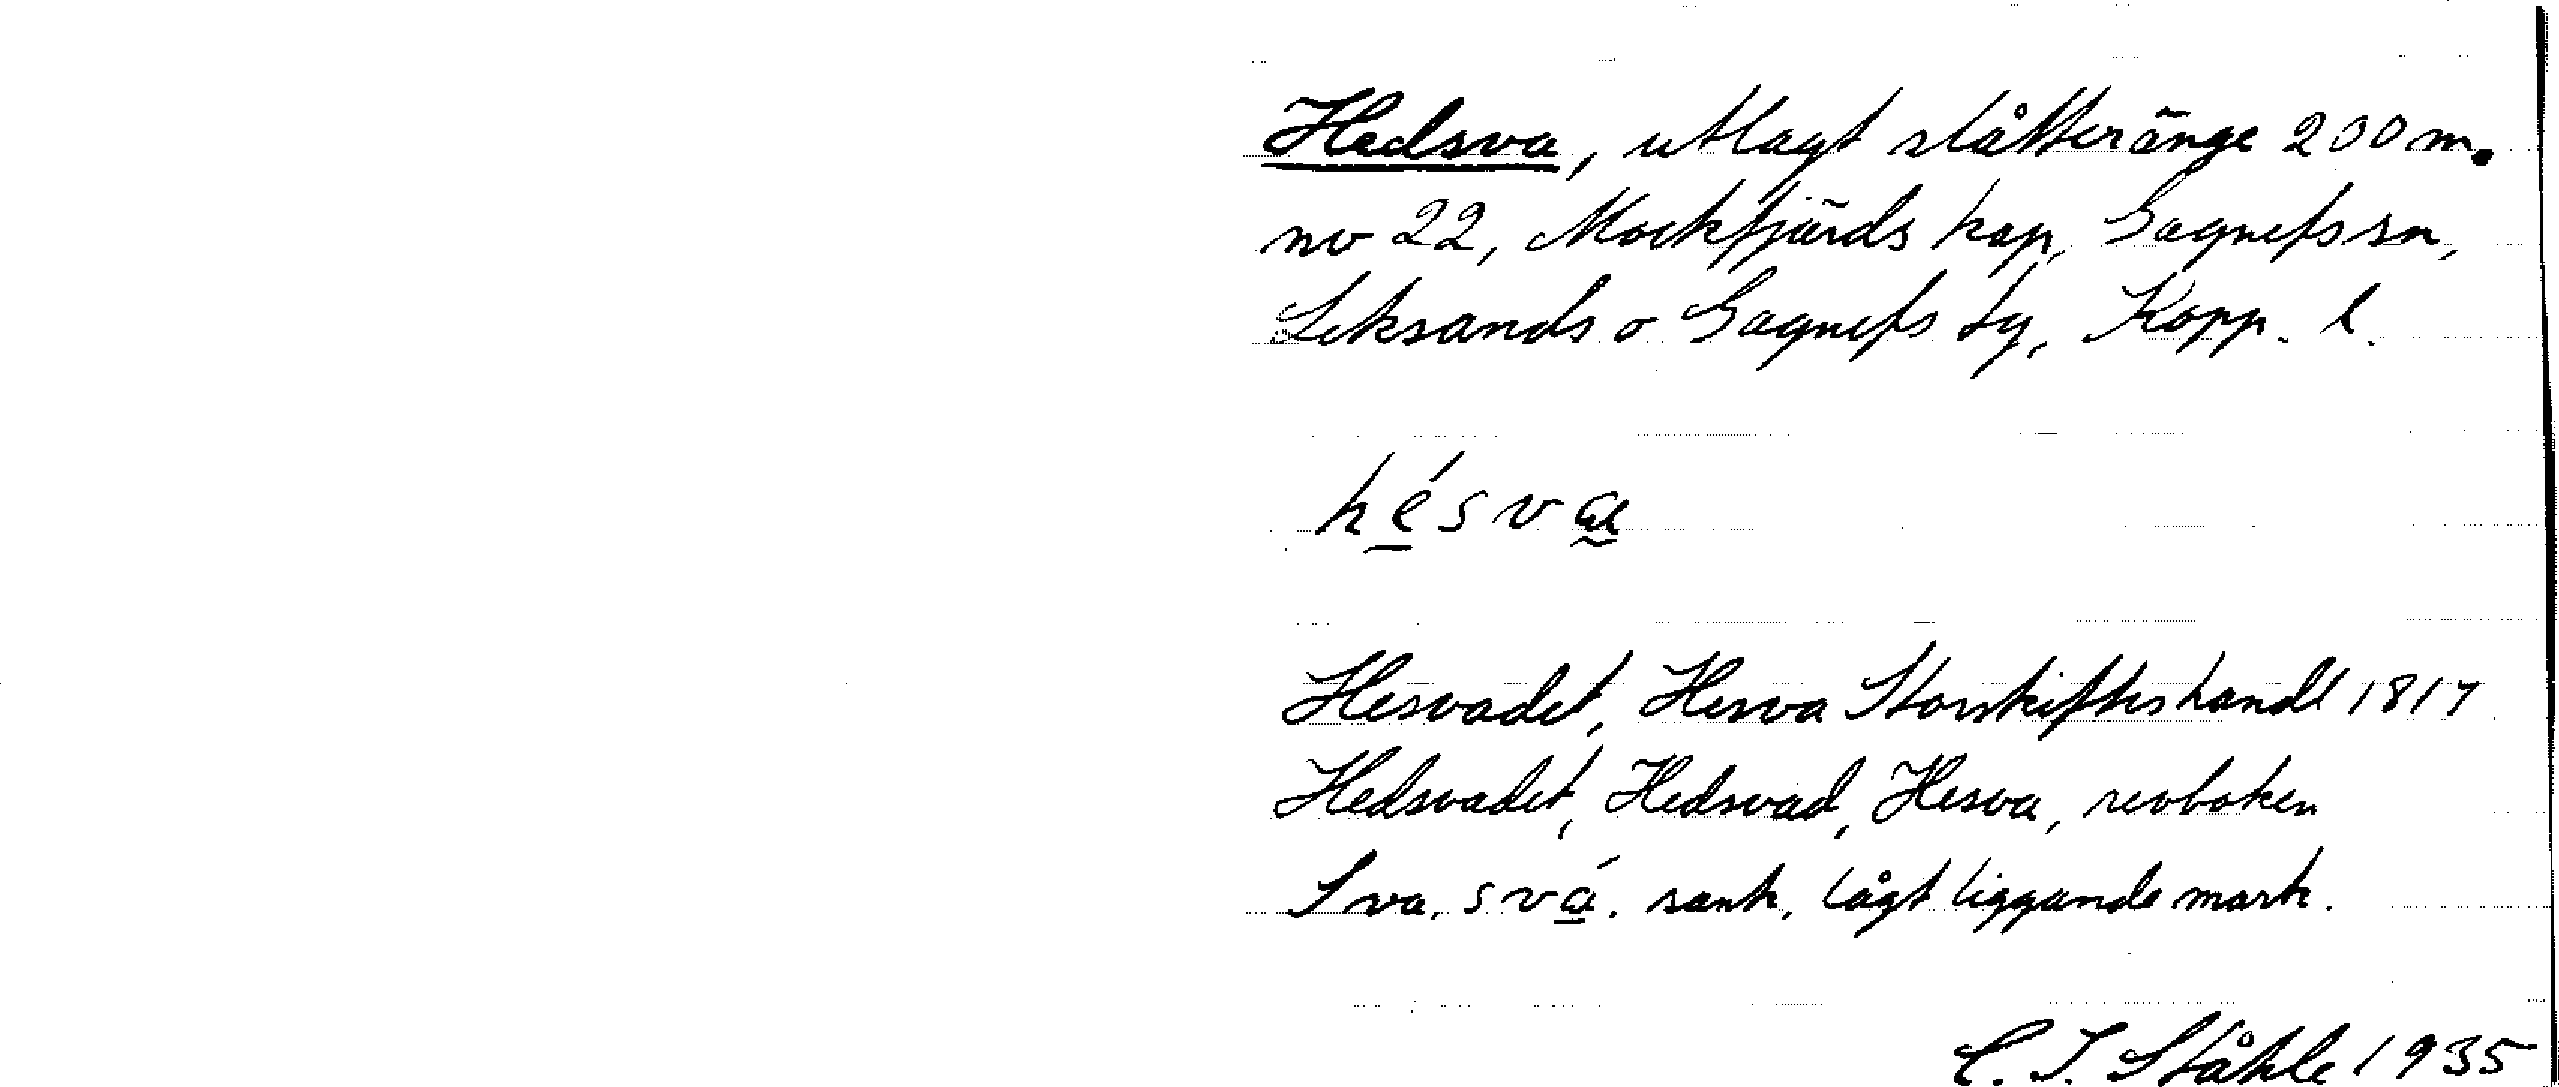 Hedsva, utlagt slåtteränge 200 m.
nv 22, Mockfjärds kap, Gagnefs sn,
Leksands o Gagnefs tg, Kopp. l.
hésvα
Hesvadet, Hesva Storskifteshandl 1817
Hedsvadet, Hedsvad, Hesva, revboken
Sva, svά. sank, lågt liggande mark.
C. I. Ståhle 1935